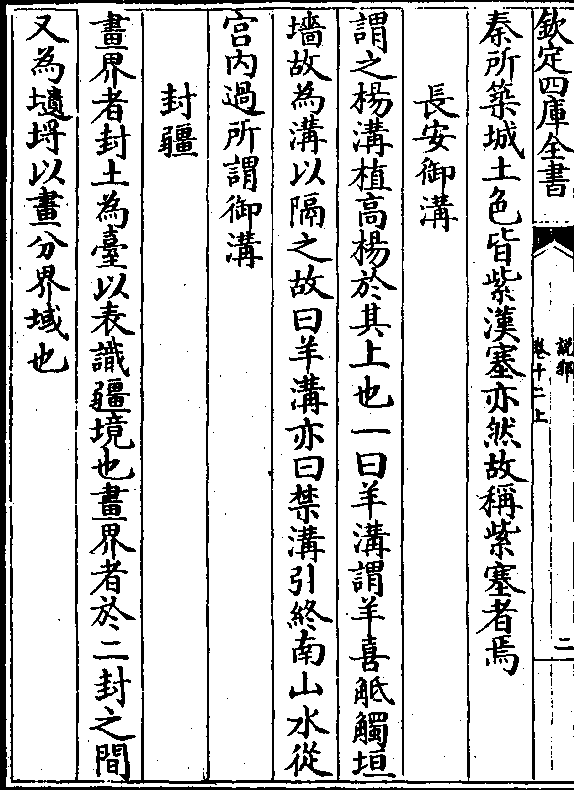 欽定四庫全書
說郛
卷十二上
二
秦所築城土色皆紫漢塞亦然故稱紫塞者焉
長安御溝
謂之楊溝植高楊於其上也一曰羊溝謂羊喜觝觸垣
墻故為溝以隔之故曰羊溝亦曰禁溝引終南山水從
宫内過所謂御溝
封疆
畫界者封土為臺以表識疆境也畫界者於二封之間
又為壝埓以畫分界域也